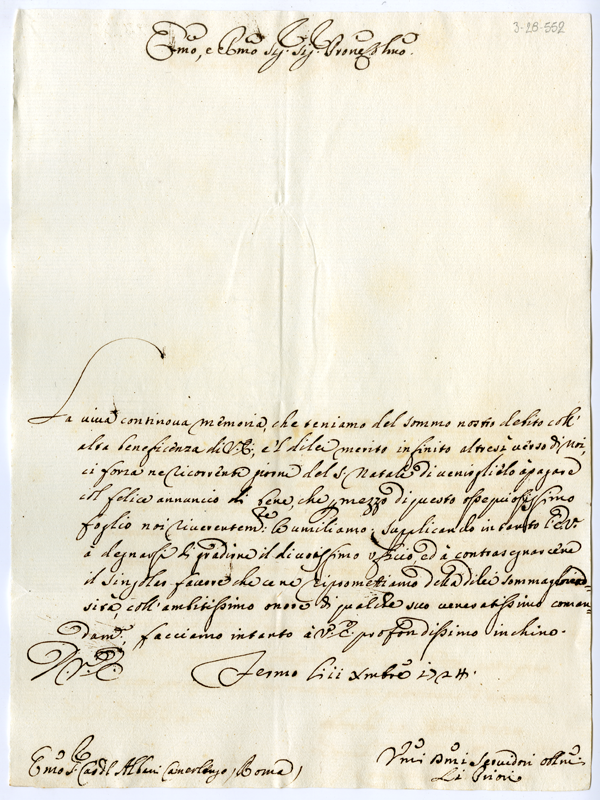 3-28-552
Emo, e Rmo Sig.r Sig.r Prone Colmo.
La viva continova memoria, che teniamo del sommo nostro debito coll'
alta beneficenza di V.E., e 'l di lei merito infinito altresì verso di noi,
ci forza ne ricorrenti giorni del S. Natale di venirglielo a pagare
col felice annuncio di bene, che p mezzo di questo ossequiosissimo
foglio noi riverentem.te l'umiliamo; supplicando intanto l'E.V.
à degnarsi di gradirne il divotissimo ufficio, ed à contrasegnarcene
il singolar favore che ce ne ripromettiamo della di lei somma generosità,
coll'ambitissimo onore di qualche suo veneratissimo coman-
dam.to, facciamo intanto à V.E. profondissimo inchino.
Di V.E.
Fermo li iii Xmbre 1724.
Emo S.r Cardl Albani Camerlengo (Roma)
Umi Dmi Servidori obbmi
Li Priori